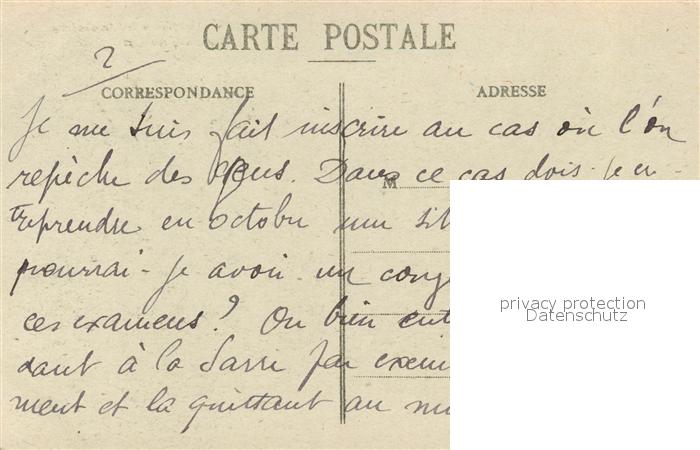 CARTE POSTALE
2
CORRESPONDANCE
ADRESSE
Je me suis fait inscrire au cas où l'on
repêche des gens. Dans ce cas dois-je en-
M
treprendre en octobre une
pourrai-je avoir un cong
ces examens ? Ou bien ent
dant à la Sarre par exem
ment et la quittant au
privacy protection
Datenschutz